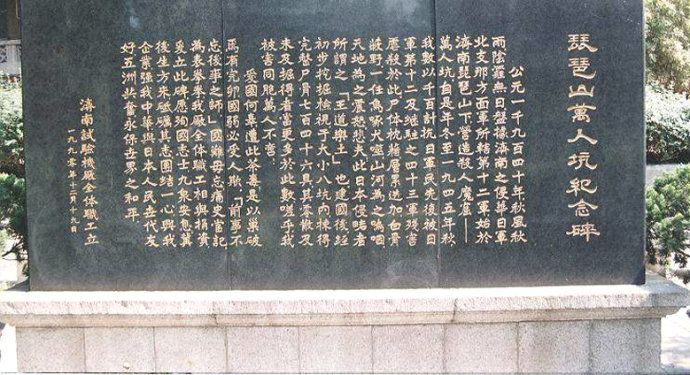 琵琶山萬人坑紀念碑
公元一千九百四十年秋風秋
雨陰霾無日盤據濟南之侵華日軍
北支那方面軍所轄第十二軍始於
濟南琵琶山下營造殺人魔窟——
萬人坑自是年冬至一九四五年秋
我數以千百計抗日軍民先後被日
軍第十二及繼駐之四十三軍殘害
屠殺於此尸体枕藉層累迭加白骨
蔽野一任鳥啄犬噬山河為之嗚咽
天地為之震怒悲夫此日本侵略者
所謂之「王道樂土」也建國後經
初步挖掘檢視于大小八坑內揀得
完整尸骨七百四十六具其零散及
未及掘得者當更多於此數嗟乎我
被害同胞萬人不啻
愛國何辜遭此荼毒是以巢破
焉有完卵國弱必受人欺「前事不
忘後事之師」國難毋忘痛史當記
為表眷眷我厰全体職工相與捐資
爰立此碑愿殉國志士九泉安息冀
後生方來砥礪其志團結一心興我
企業强我中華與日本人民世代友
好五洲共奮永保世界之和平
濟南試驗機厰全体職工立
一九九零年十二月十九日